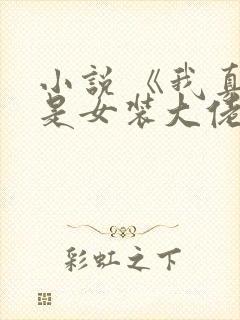 小説《我真
是女装大佬
彩虹之下